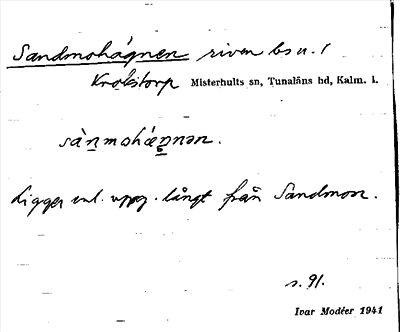 Sandmohägnen riven bs u. /
Krokstorp Misterhults sn, Tunaläns hd, Kalm. l.
sàn̲mohæn̲nən.
Ligger enl. uppg. långt från Sandmon.
s. 91.
Ivar Modéer 1941